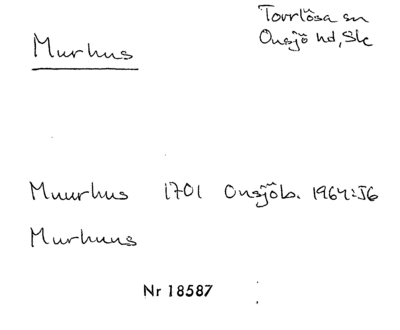 Murhus
Torrlösa sn
Onsjö hd, Sk
Muurhus 1701 Onsjö lb. 1964:56
Murhuus
Nr 18587